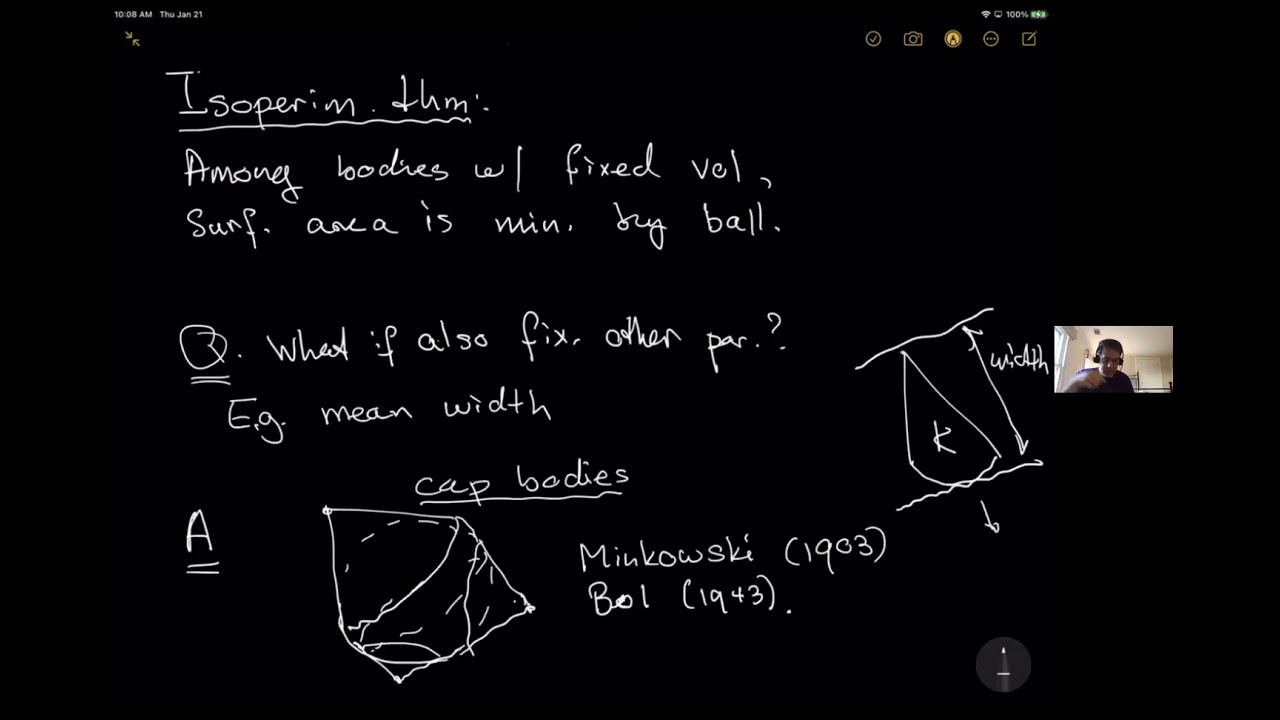 10:08 AM Thu Jan 21
100%
Isoperim. thm:
Among bodies w/ fixed vol,
Surf. area is min. by ball.
Q. What if also fix. other par.?
E.g. mean width
width
K
cap bodies
A
Minkowski (1903)
Bol (1943).